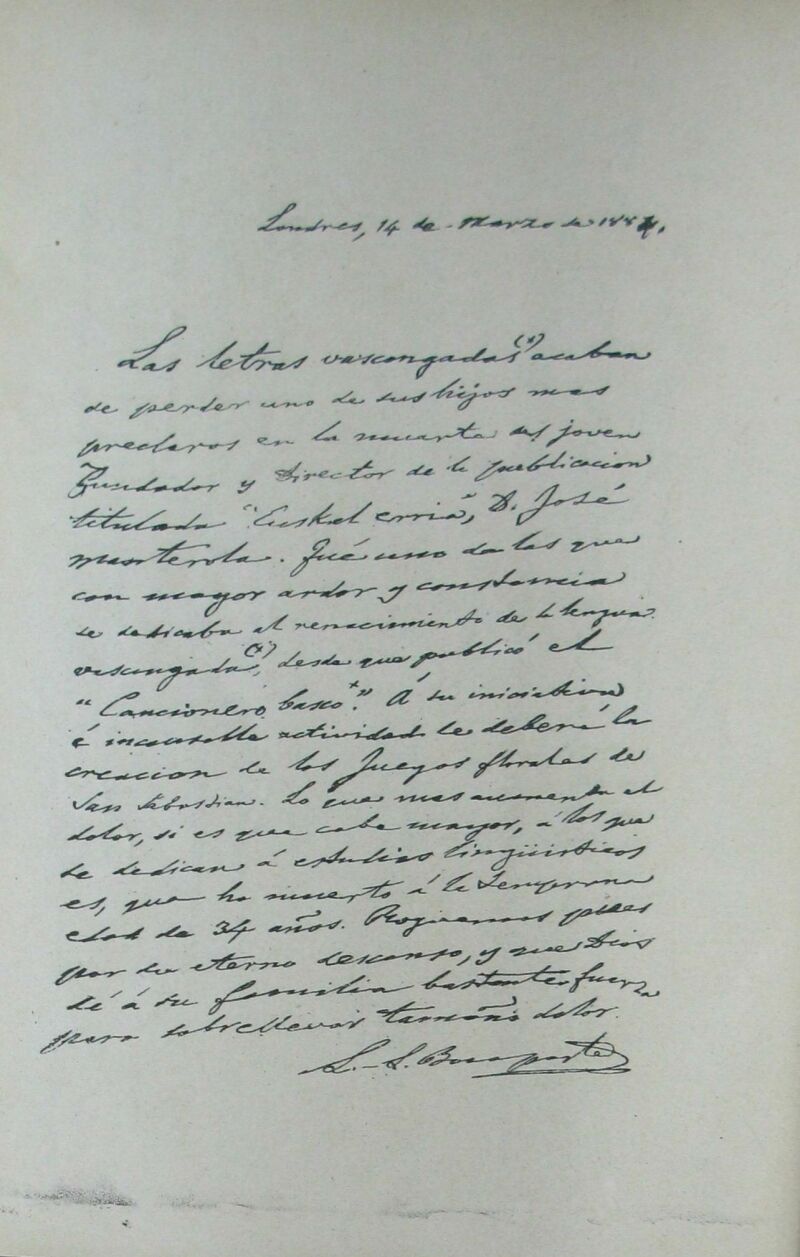 Londres, 14 de Marzo de 1884.
Las letras vascongadas (*) acaban
de perder uno de sus hijos mas
preclaros en la muerte del joven
Fundador y Director de la publicacion
titulada "Euskal-erria", D. José
Manterola. Fué uno de los que
con mayor ardor y constancia
se dedicaba al renacimiento de la lengua
vascongada (*), desde que publicó el
"Cancionero basco*." Á su iniciativa
é incansable actividad se deberá la
creacion de los Juegos florales de
San Sebastian. Lo que mas aumenta el
dolor, si es que cabe mayor, á los que
se dedican á estudios lingüisticos
es, que ha muerto á la temprana
edad de 34 años. Roguemos pues
por su eterno descanso, y que Dios
dé á su familia bastante fuerza
para sobrellevar tamaño dolor.
L.-L. Bonaparte